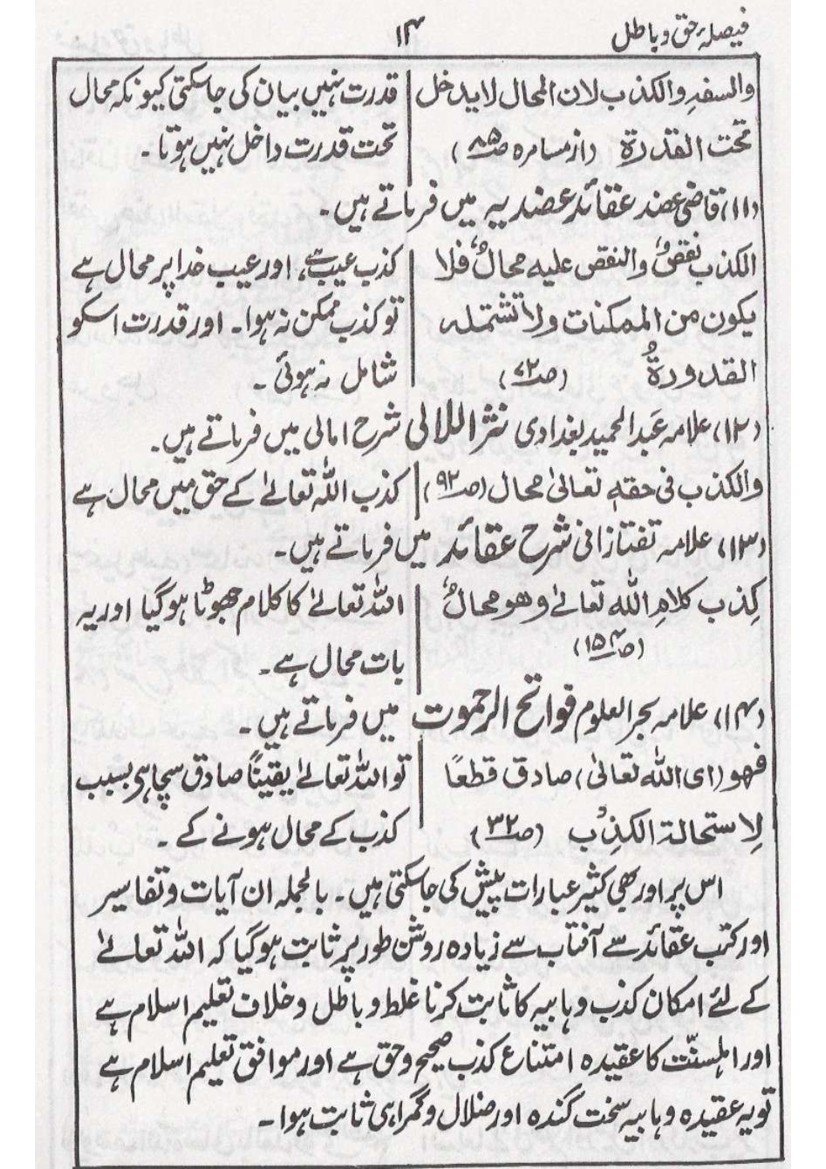 فیصلہ حق و باطل
۱۴
والسفہ والکذب لان المحال لایدخل
تحت القدرۃ (از مسامرہ صـ۸۵)
قدرت نہیں بیان کی جاسکتی کیونکہ محال
تحت قدرت داخل نہیں ہوتا۔
(۱۱) قاضی عضد عقائد عضدیہ میں فرماتے ہیں۔
الکذب نقصٌ والنقص علیہ محالٌ فلا
یکون من الممکنات ولا تشتملہ
القدورۃُ (صـ۷۲)
کذب عیب ہے، اور عیب خدا پر محال ہے
تو کذب ممکن نہ ہوا۔ اور قدرت اسکو
شامل نہ ہوئی۔
(۱۲) علامہ عبدالحمید بغدادی نثر اللالی شرح امالی میں فرماتے ہیں۔
والکذب فی حقہٖ تعالیٰ محال (صـ۹۲)
کذب اللہ تعالےٰ کے حق میں محال ہے
(۱۳) علامہ تفتازانی شرح عقائد میں فرماتے ہیں۔
کِذب کلامِ اللہ تعالےٰ وھو محالٌ
(صـ۱۵۴)
اللہ تعالےٰ کا کلام جھوٹا ہوگیا اور یہ
بات محال ہے۔
(۱۴) علامہ بحرالعلوم فواتح الرحموت میں فرماتے ہیں۔
فھو (ای اللہ تعالیٰ) صادق قطعًا
لِاستحالۃ الکذب (صـ۳۲)
تو اللہ تعالےٰ یقیناً صادق سچا ہی بسبب
کذب کے محال ہونے کے۔
اس پر اور بھی کثیر عبارات پیش کی جاسکتی ہیں۔ بالجملہ ان آیات و تفاسیر
اور کتب عقائد سے آفتاب سے زیادہ روشن طور پر ثابت ہوگیا کہ اللہ تعالےٰ
کے لئے امکان کذب وہابیہ کا ثابت کرنا غلط و باطل و خلاف تعلیم اسلام ہے
اور اہلسنّت کا عقیدہ امتناع کذب صحیح و حق ہے اور موافق تعلیم اسلام ہے
تو یہ عقیدہ وہابیہ سخت گندہ اور ضلال و گمراہی ثابت ہوا۔